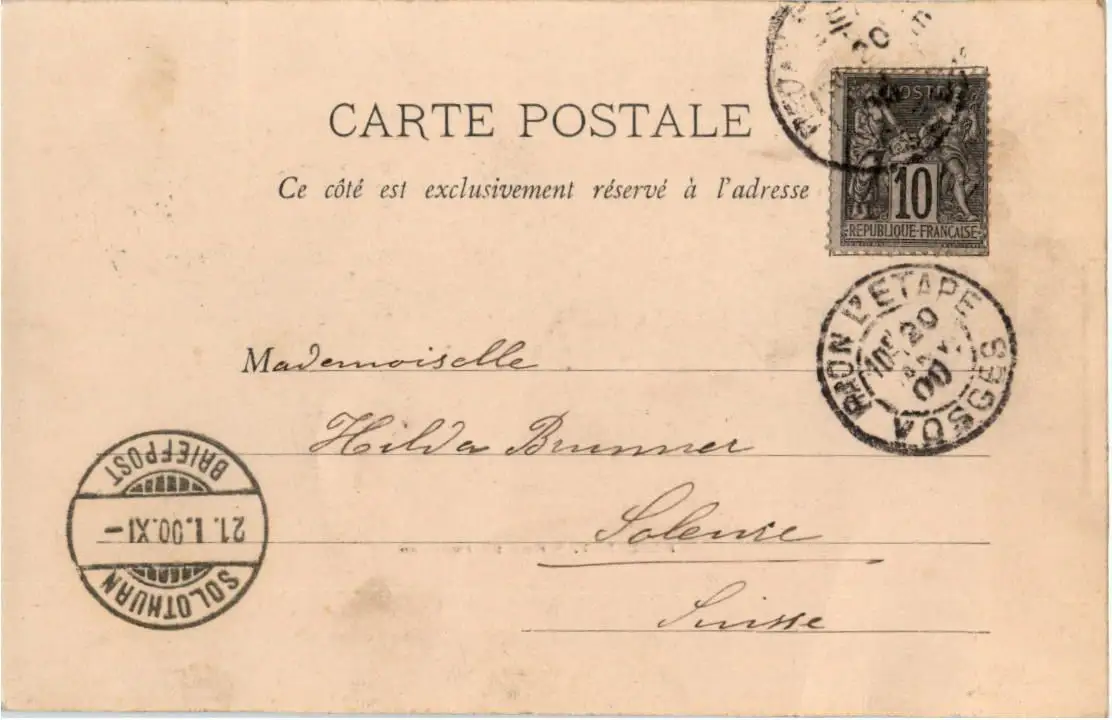 CARTE POSTALE
Ce côté est exclusivement réservé à l'adresse
POSTE
10
REPUBLIQUE-FRANÇAISE
RAON L'ETAPE
20
00
VOSGES
Mademoiselle
Hilda Brunner
Soleure
Suisse
SOLOTHURN
21.I.00.XI-
BRIEFPOST